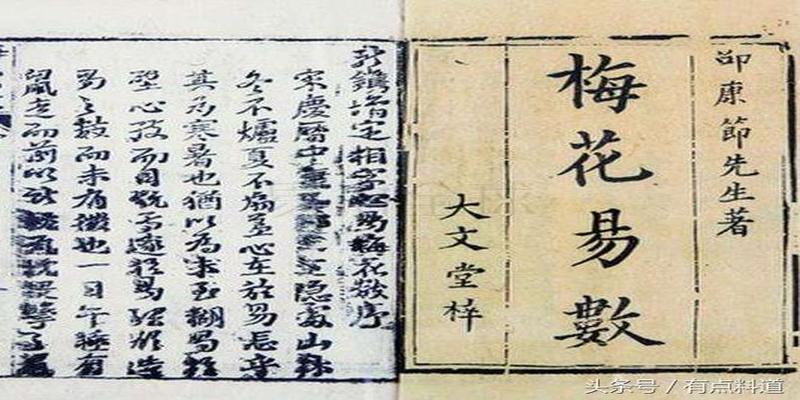 邵康節先生著
梅花易數
大文堂梓
新鐫增定相字心易梅花數序
宋慶曆中隱處山林
冬不爐夏不扇盖心在於易忘乎
其為寒暑也猶以為未至糊易於
壁心致而目玩焉邃於易理欲造
易之數而未有徵也一日午睡有
鼠走而前以所
头条号 / 有点料道